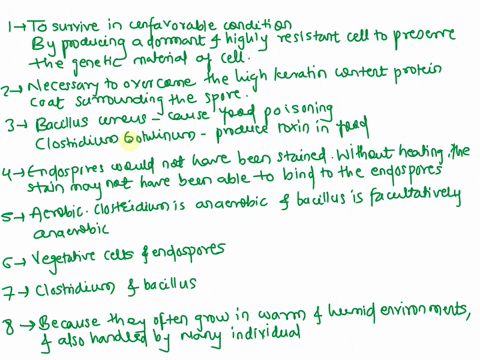 1→ To survive in cenfavorable condition
By producing a dormant & highly resistant cell to preserve
the genetic material of cell.
2→ Necessary to overcome the high keratin content protein
coat surrounding the spore.
3→ Bacillus cereus - cause food poisoning
Clostidium botulinum - produce toxin in food
4→ Endospires would not have been stained. Without heating, the
stain may not have been able to bind to the endospores
5→ Aerobic. Clostridium is anaerobic & bacillus is facultatively
anaerobic
6→ Vegetative cells & endospores
7→ Clostidium & bacillus
8→ Because they often grow in warm & humid environments,
& also handled by many individual